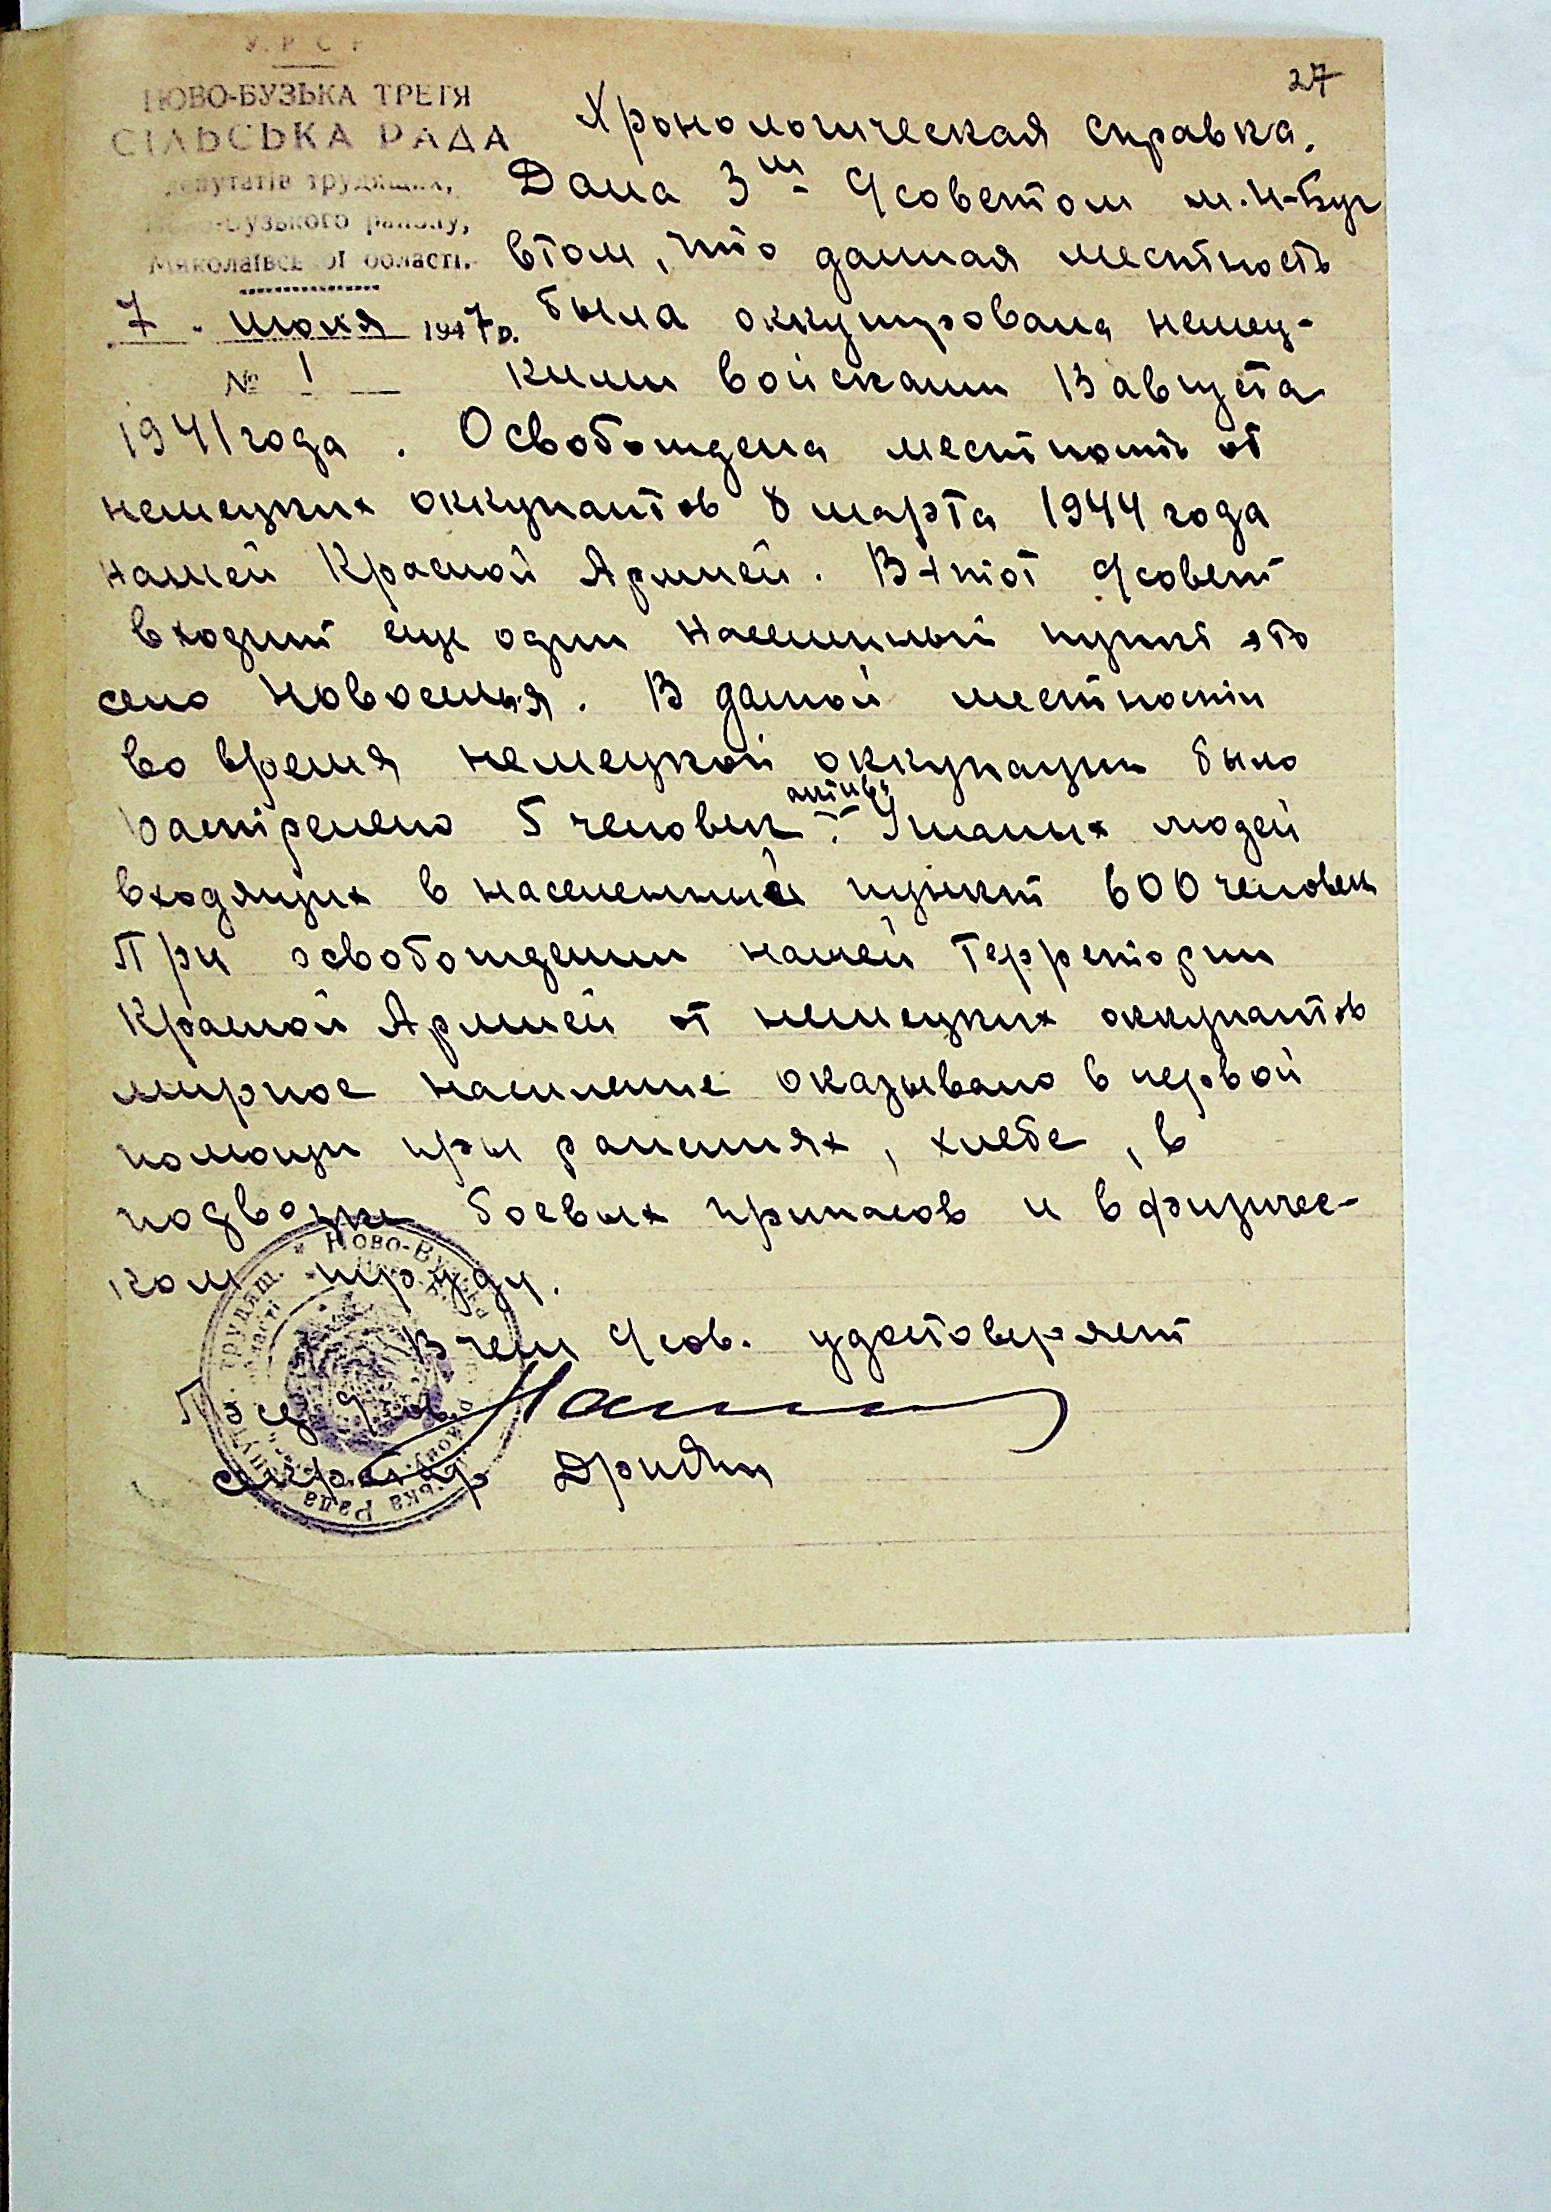 27
У.Р.С.Р
НОВО-БУЗЬКА ТРЕТЯ
СІЛЬСЬКА РАДА
депутатів трудящих,
Ново-Бузького району,
Миколаївської області.
7. июля 1947 р.
№ 1
Хронологическая справка.
Дана 3м с/советом м. Н-Буг
втом, что данная местность
была оккупирована немец-
кими войсками 13 августа
1941 года. Освобождена местность от
немецких оккупантов 8 марта 1944 года
нашей Красной Армией. В этот с/совет
входит еще один населиный пункт это
село Новоселья. В даной местности
во время немецкой оккупации было
растрелено 5 человек актив.
Угнаных людей
входящих в населенный пункт 600 человек
При освобождении нашей Терретории
Красной Армией от немецких оккупантов
мирное насиление оказывало в первой
помощи при ранениях, хлебе, в
подвозки боевых припасов и в физичес-
ком труду.
В чем с/сов. удостоверяет
Пред с/сов
секретар